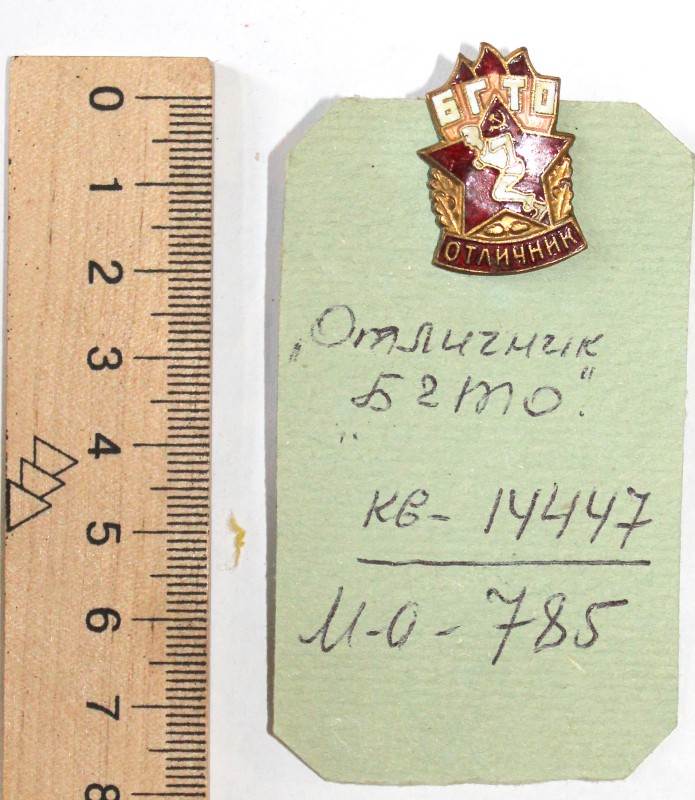 БГТО
ОТЛИЧНИК
„Отличник
БГТО"
кв- 14447
М-О- 785
0
1
2
3
4
5
6
7
8